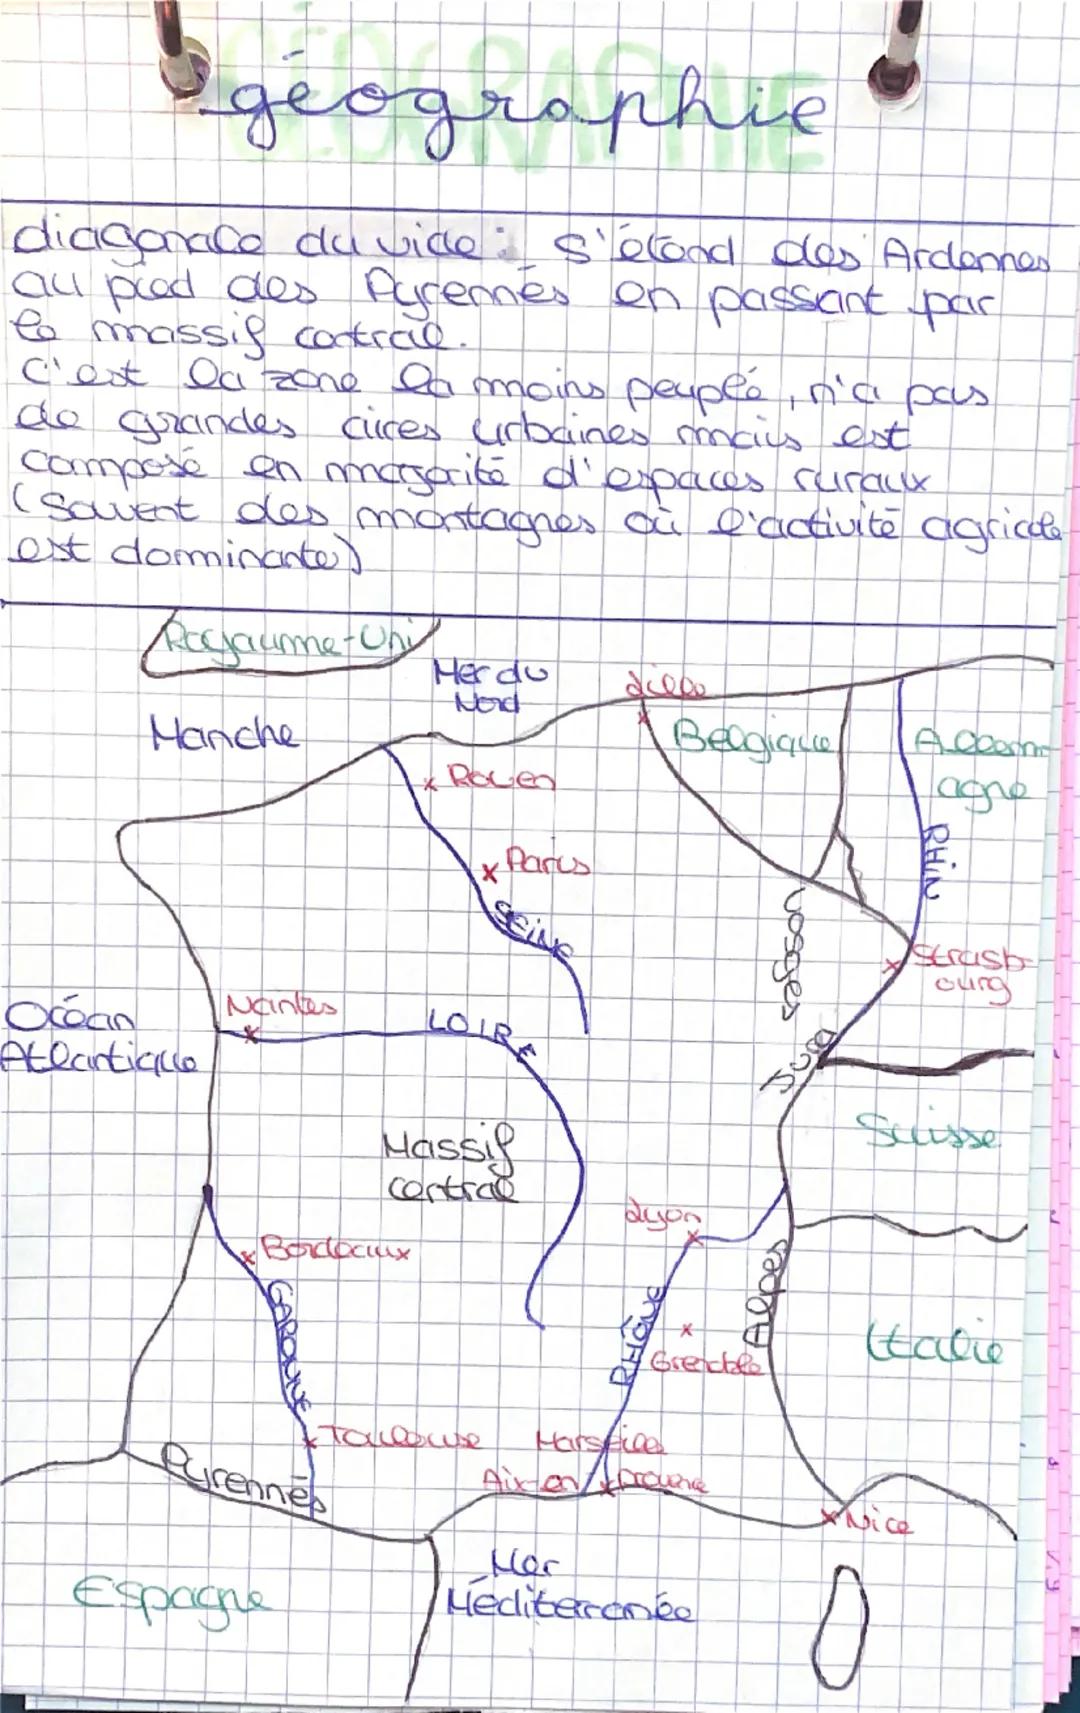 GÉOGRAPHIE
géographie
diagonale du vide : s'étend des Ardennes
au pied des Pyrennés en passant par
le massif central.
C'est la zone la moins peuplé, n'a pas
de grandes aires urbaines mais est
composé en majorité d'espaces ruraux
(Souvent des montagnes où l'activité agricole
est dominante)
Royaume-Uni
Mer du
Nord
Lille
Manche
Belgique
Allem-
agne
Rouen
RHIN
Paris
SEINE
Vosges
Strasb-
ourg
Nantes
LOIRE
Océan
Atlantique
Jura
Suisse
Massif
central
Lyon
Bordeaux
Alpes
GARONNE
RHÔNE
Italie
Grenoble
Toulouse
Marseille
Pyrennés
Aix-en Provence
Nice
Mer
Méditerranée
Espagne